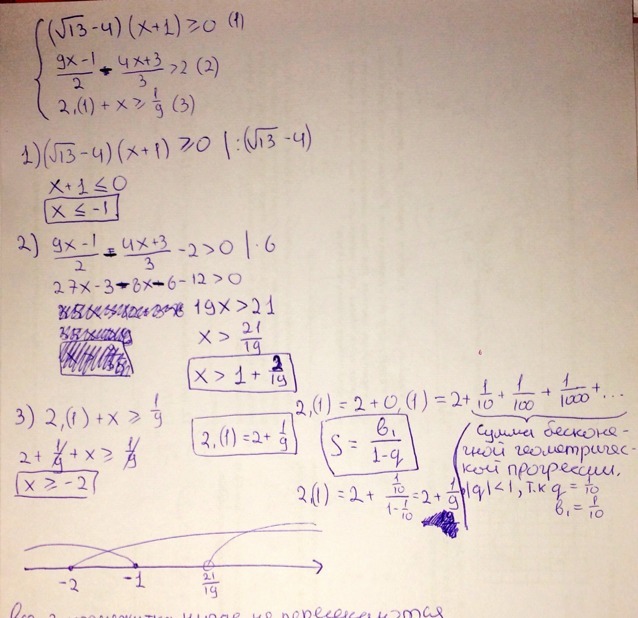 (√13-4)(x+1)≥0 (1)
(9x-1)/2 - (4x+3)/3 >2 (2)
2,(1)+x≥1/9 (3)
1)(√13-4)(x+1)≥0 |:(√13-4)
x+1≤0
x≤-1
2) (9x-1)/2 - (4x+3)/3 -2>0 |·6
27x-3-8x-6-12>0
19x>21
x>21/19
x>1+2/19
3) 2,(1)+x≥1/9
2+1/9+x≥1/9
x≥-2
2,(1)=2+1/9
2,(1)=2+0,(1)=2+1/10+1/100+1/1000+...
S=b₁/(1-q)
2,(1)=2+(1/10)/(1-1/10)=2+1/9
сумма бесконе-
чной геометричес-
кой прогрессии.
|q|<1, т.к q=1/10
b₁=1/10
-2 -1 21/19
не пересекаются